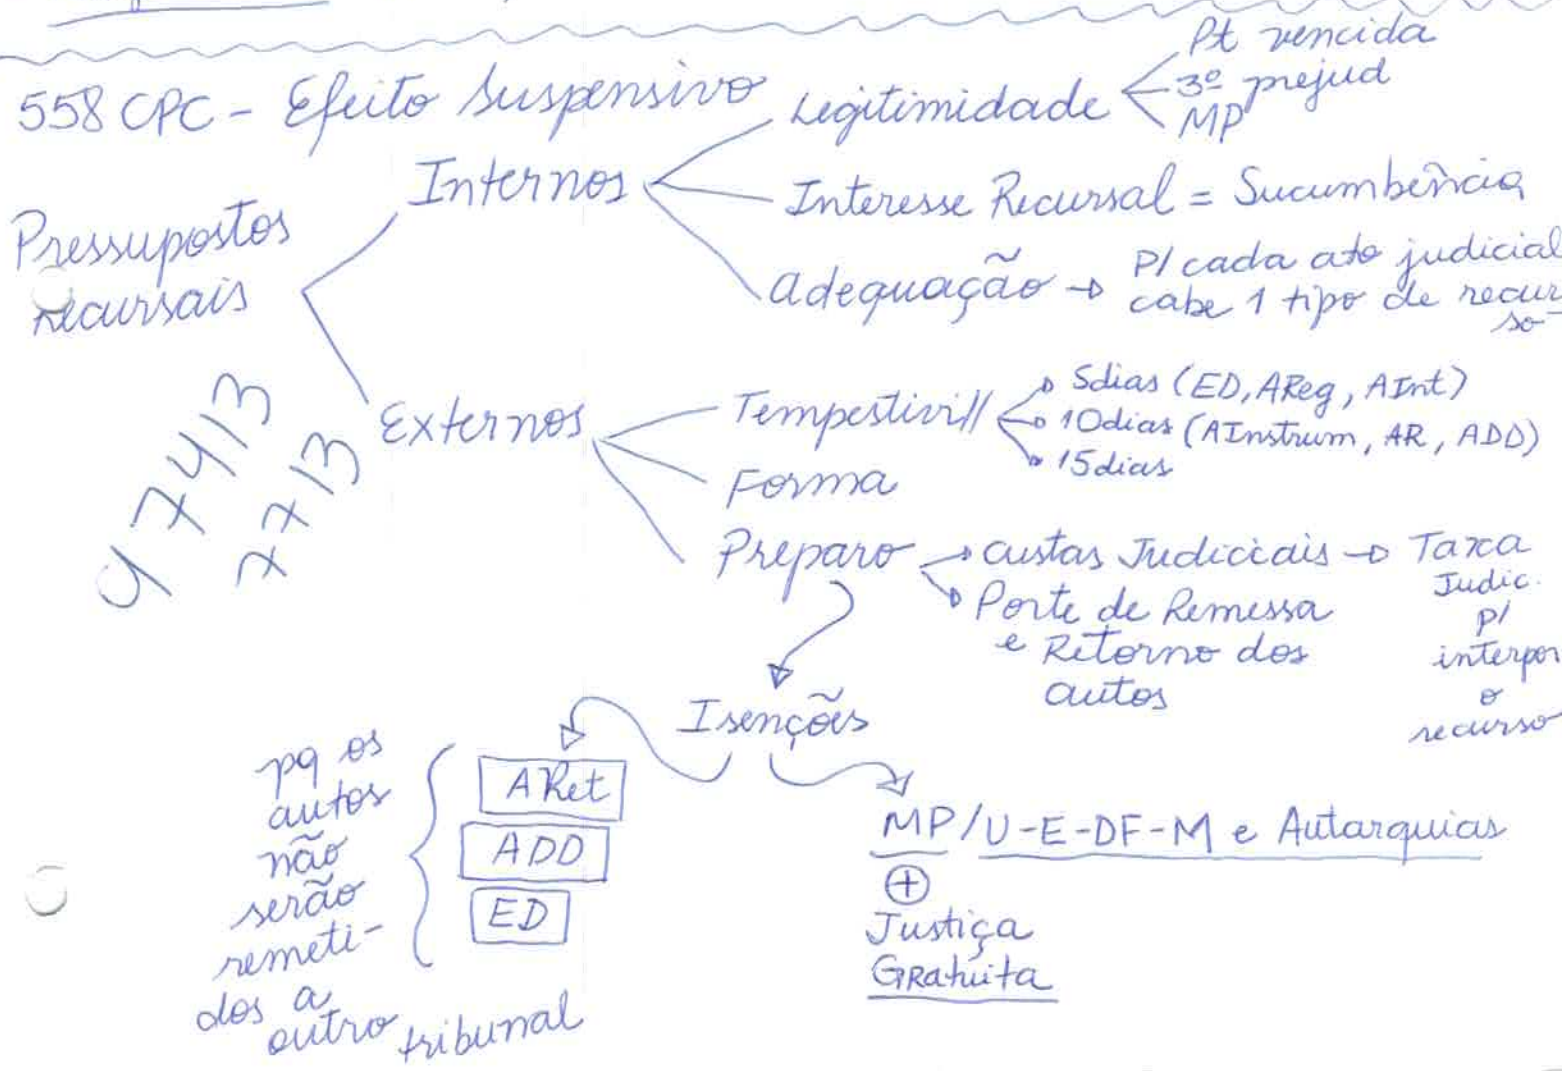 558 CPC - Efeito Suspensivo
Pressupostos
recursais
Internos
Legitimidade
Pt vencida
3º prejud
MP
Interesse Recursal = Sucumbência
Adequação → P/ cada ato judicial
cabe 1 tipo de recur
so
Externos
Tempestivi//
5dias (ED, AReg, AInt)
10dias (AInstrum, AR, ADD)
15dias
Forma
Preparo
custas Judiciais → Taxa
Judic.
p/
interpor
o
recurso
Porte de Remessa
e Retorno dos
autos
Isenções
ARet
ADD
ED
pq os
autos
não
serão
remeti-
dos a
outro tribunal
MP/U-E-DF-M e Autarquias
+
Justiça
Gratuita
7713